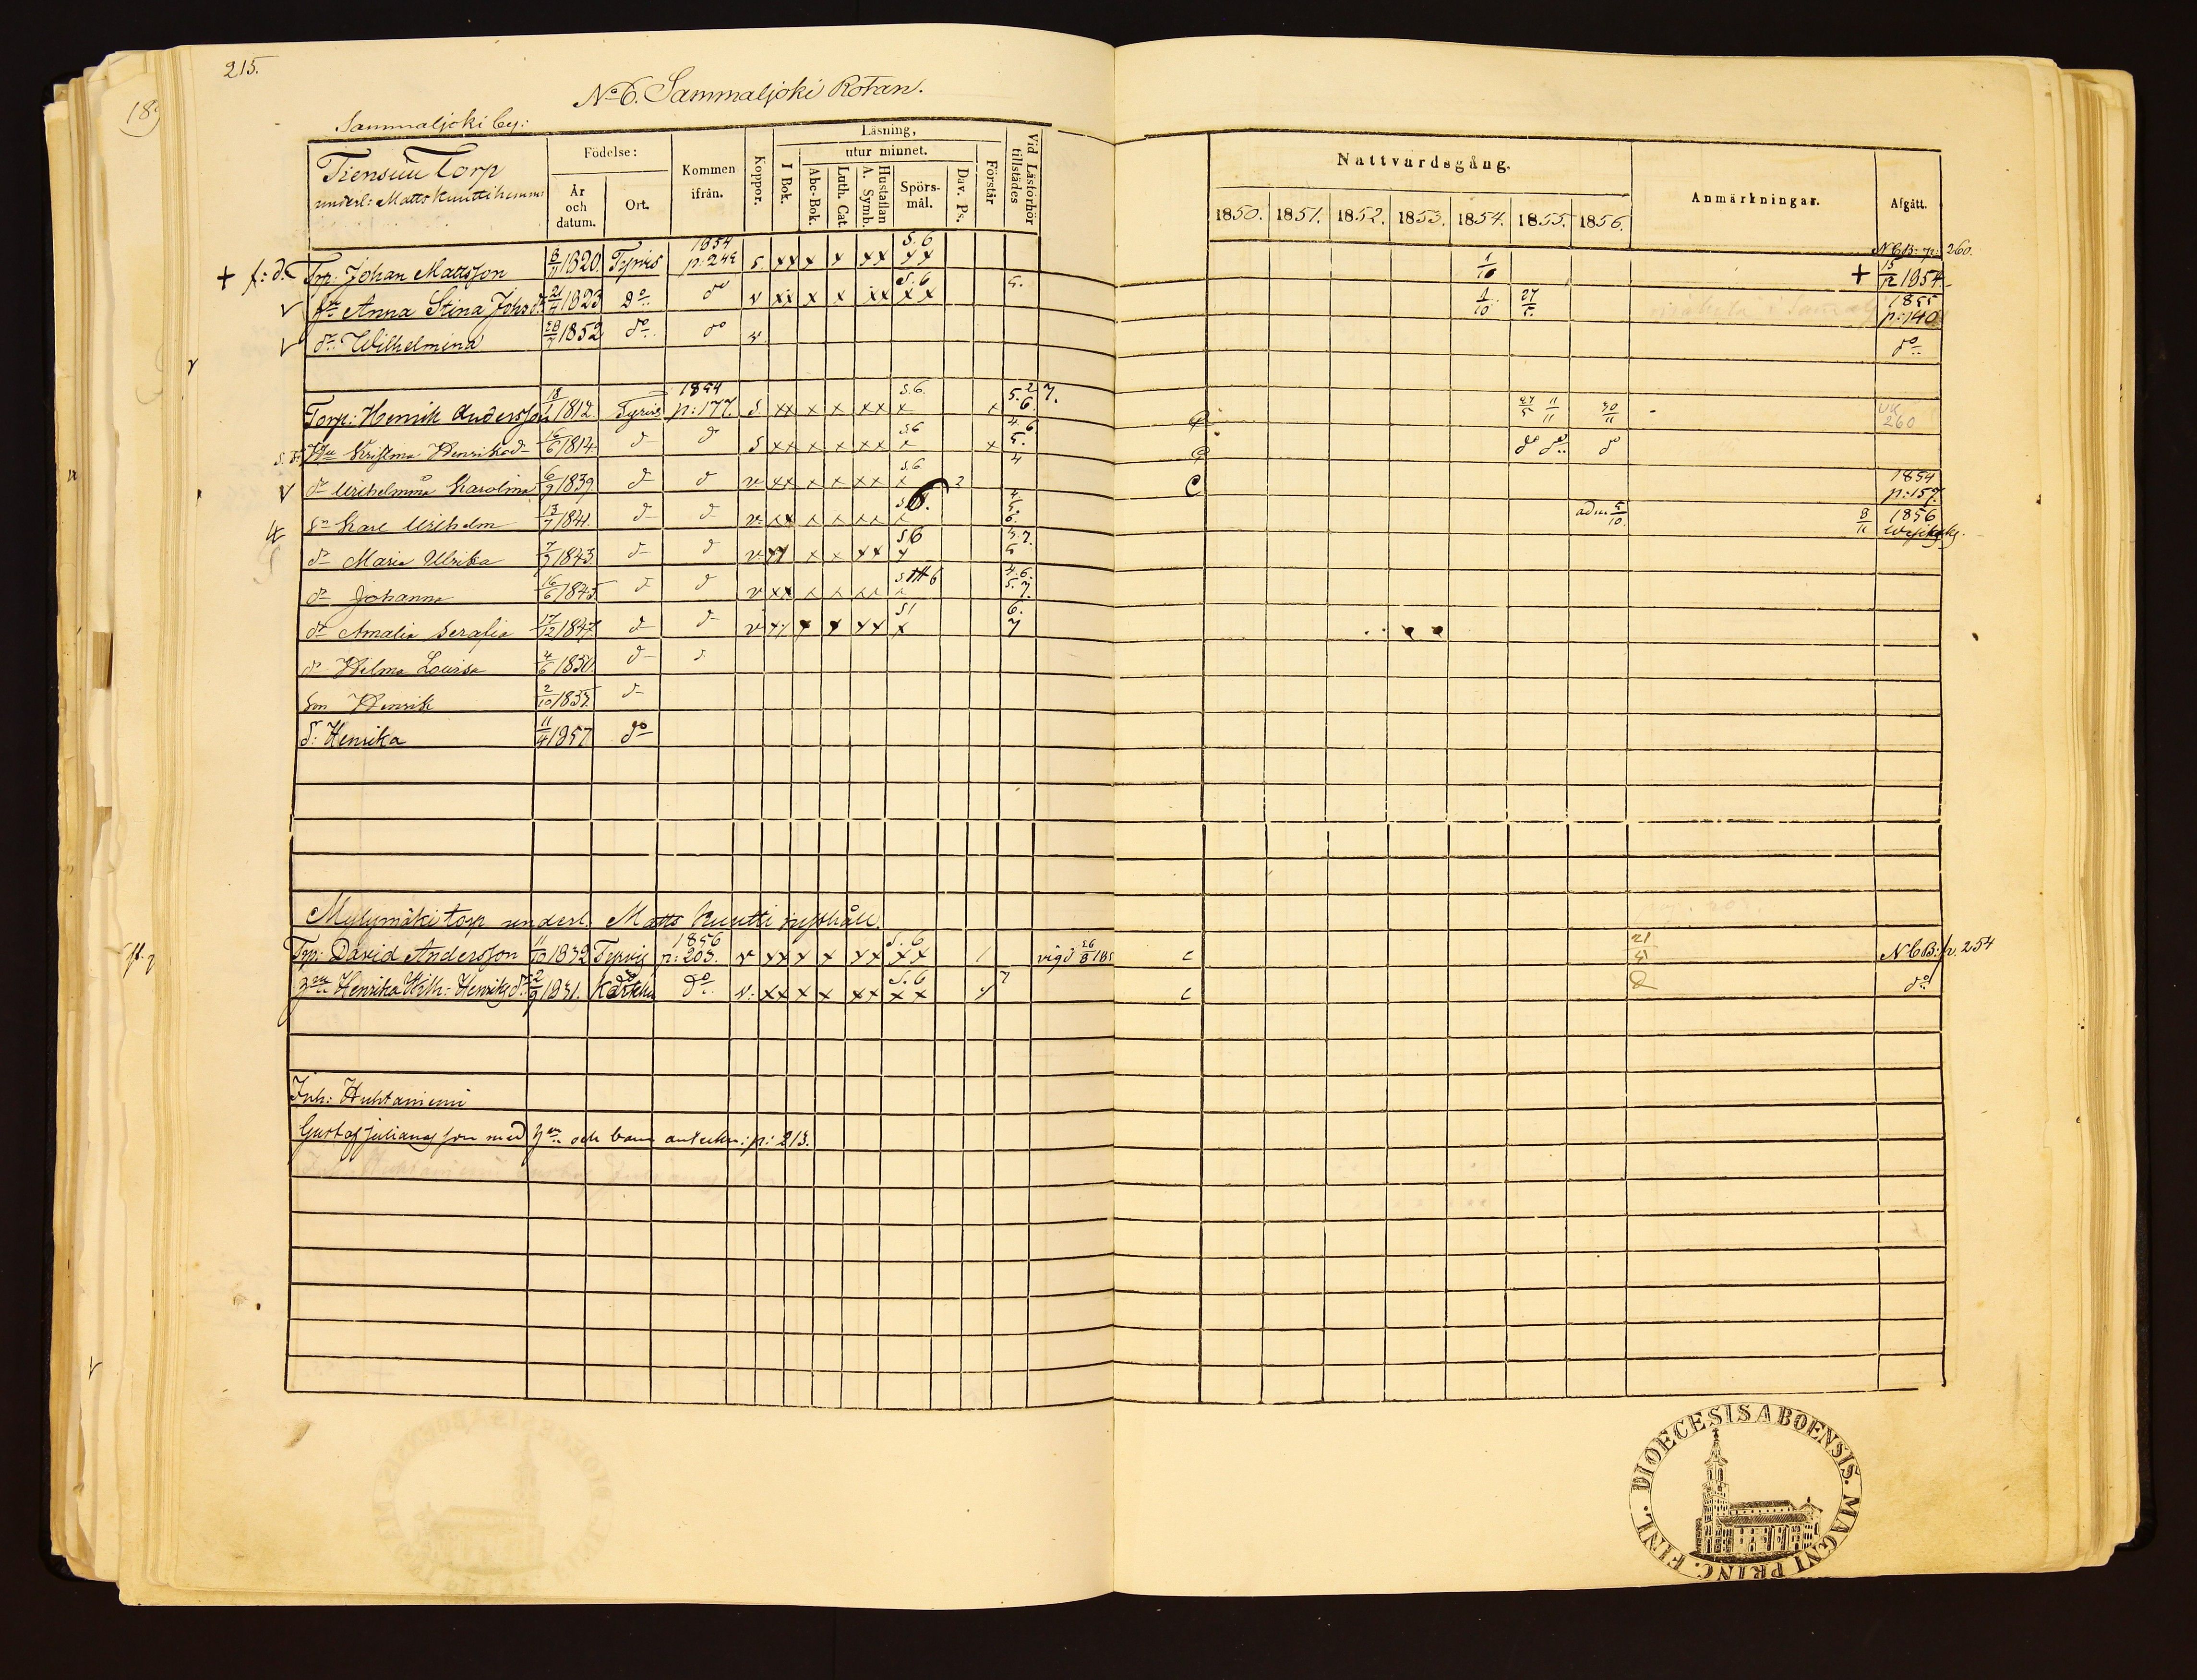 215.
No 6. Sammaljoki Rotan.
Sammaljoki by:
Tiensuu Torp
underl: Matts Kuutti hemm:
Födelse:
År och datum.
Ort.
Kommen ifrån.
Koppor.
Läsning,
utur minnet.
I Bok.
Abc-Bok.
Luth. Cat.
Hustaflan A. Symb.
Spörsmål.
Dav. Ps.
Förstår
Vid Läsförhör tillstädes
Nattvardsgång.
1850. 1851. 1852. 1853. 1854. 1855. 1856.
Anmärkningar.
Afgått.
+ f: d. Trp: Johan Mattsson 8/11 1820. Tyrvis 1854 p: 242 s. xx x x xx s. 6 xx 1/10 + N C B: p: 260. 15/12 1854.
v Anna Stina Johs dr 21/4 1823 Do do v xx x x xx s. 6 xx 5. 1/10 27/5 1855 p: 140.
v dr: Wilhelmina 28/7 1852 do do v do
Torp: Henrik Andersson 18/1 1812. Tyrvis 1854 p: 177. s. xx x x xx s.6. x x 5. 2 7. 6. 27/5 11/11 30/11 UK 260
Hu Kristina Henriksd 16/6 1814. d d s xx x x xx s.6 x x 4. 6 5. do do d
v dr Wilhelmina Karolina 6/9 1839. d d v xx x x xx s.6 x 2 4 C 1854 p: 157.
sn Karl Wilhelm 13/7 1841. d d v. xx x x xx 6. x 4. 5. 6. adm 5/10. 8/11 1856
dr Maria Ulrika 7/9 1843. d d v. xx x x xx s6 x
dr Johanna 16/6 1845 d d v xx x x xx 6 x 4. 6. 5. 7.
dr Amalia Serafia 17/12 1847. d d v xx x x xx s1 x 6. 7
dr Hilma Lovisa 4/6 1850. d d
Son Henrik 2/10 1855. d
d: Henrika 11/4 1857 do
Myllymäki torp underl. Matts Kuutti rusthåll.
Trp: David Andersson 11/10 1832 Tyrvis 1856 p: 203. v xx x x xx s. 6 xx 1 vigd 26/8 185 c 21/4 N C B: p. 254
Henrika Wilh: Henriksdr 2/9 1831. Karkku do v: xx x x xx s. 6 xx 7 c do
Inh: Huhtaniemi
Gustaf Julianasson med och barn anteckn: p: 213.
DIOECESIS ABOENSIS. MAGNI PRINC. FINL.